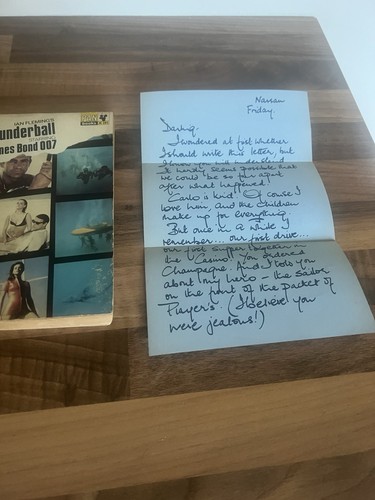 PAN
IAN FLEMING'S
underball
STARRING
nes Bond 007
Nassau
Friday.
Darling.
I wondered at first whether
I should write this letter, but
I know you will understand.
It hardly seems possible that
we could be so far apart
after what happened!
Carlo is kind. Of course I
love him, and the children
make up for everything.
But once in a while I
remember... our first drive...
our first supper together in
the Casino. You ordered
Champagne. And I told you
about my hero - the sailor
on the front of the packet of
Player's. (I believe you
were jealous!)